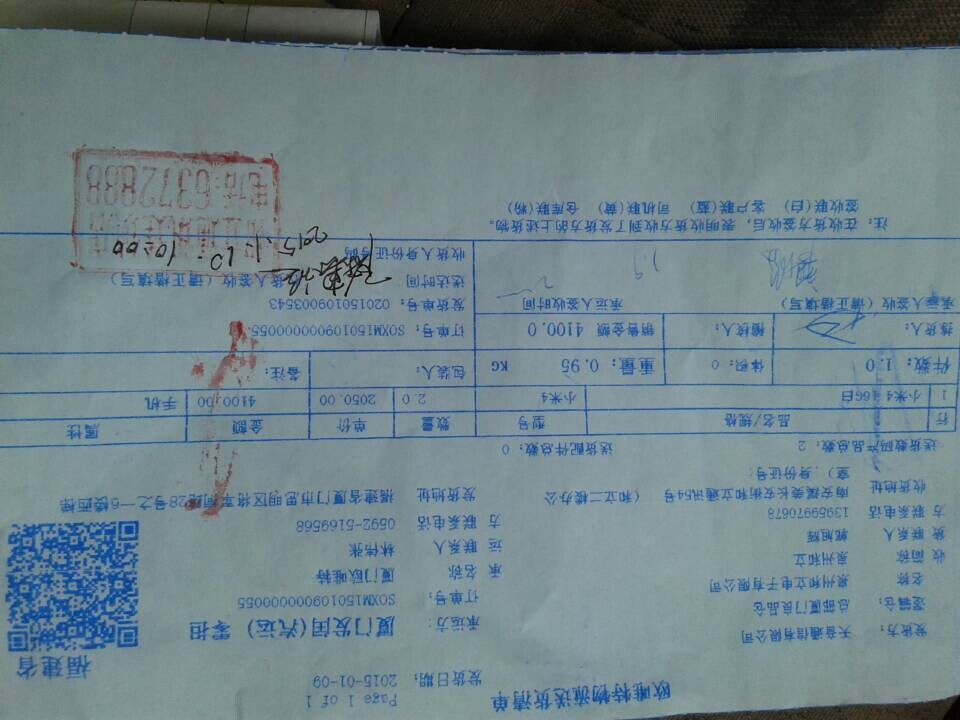 欧唯特物流送货清单
福建省
发货日期: 2015-01-09 Page 1 of 1
发货方: 天音通信有限公司 承运方: 厦门发闰(汽运) 零担
逻辑仓: 总部厦门良品仓 订单号: SOXM150109000000055
收货方
名称 泉州和立电子有限公司
简称 泉州和立
联系人
联系电话 13959970678
收货地址 南安霞美长安街和立通讯54号 (和立二楼办公
室) ,身份证号:
承运方
名称 厦门欧唯特
联系人 林伟张
联系电话 0592-5169568
发货地址
送货数码产品总数: 2 送货配件总数: 0
行 品名/规格 型号 数量 单价 金额 属性
1 小米4 16G白 小米4 2.0 2050.00 4100.00 手机
件数: 1.0 体积: 0 重量: 0.95 KG 包装人: 备注:
拣货人: 稽核人: 销售金额 4100.0 订单号: SOXM150109000000055
发货单号: 020150109003543
承运人签收 (请正楷填写) 承运人签收时间 收货人签收 (请正楷填写)
送达时间
收货人身份证号码
2015.1.10. 10:00
电话:6372888
注: 在收货方签收后, 表明收货方收到了发货方的上述货物。
签收联(白) 客户联(蓝) 司机联(黄) 仓库联(粉)